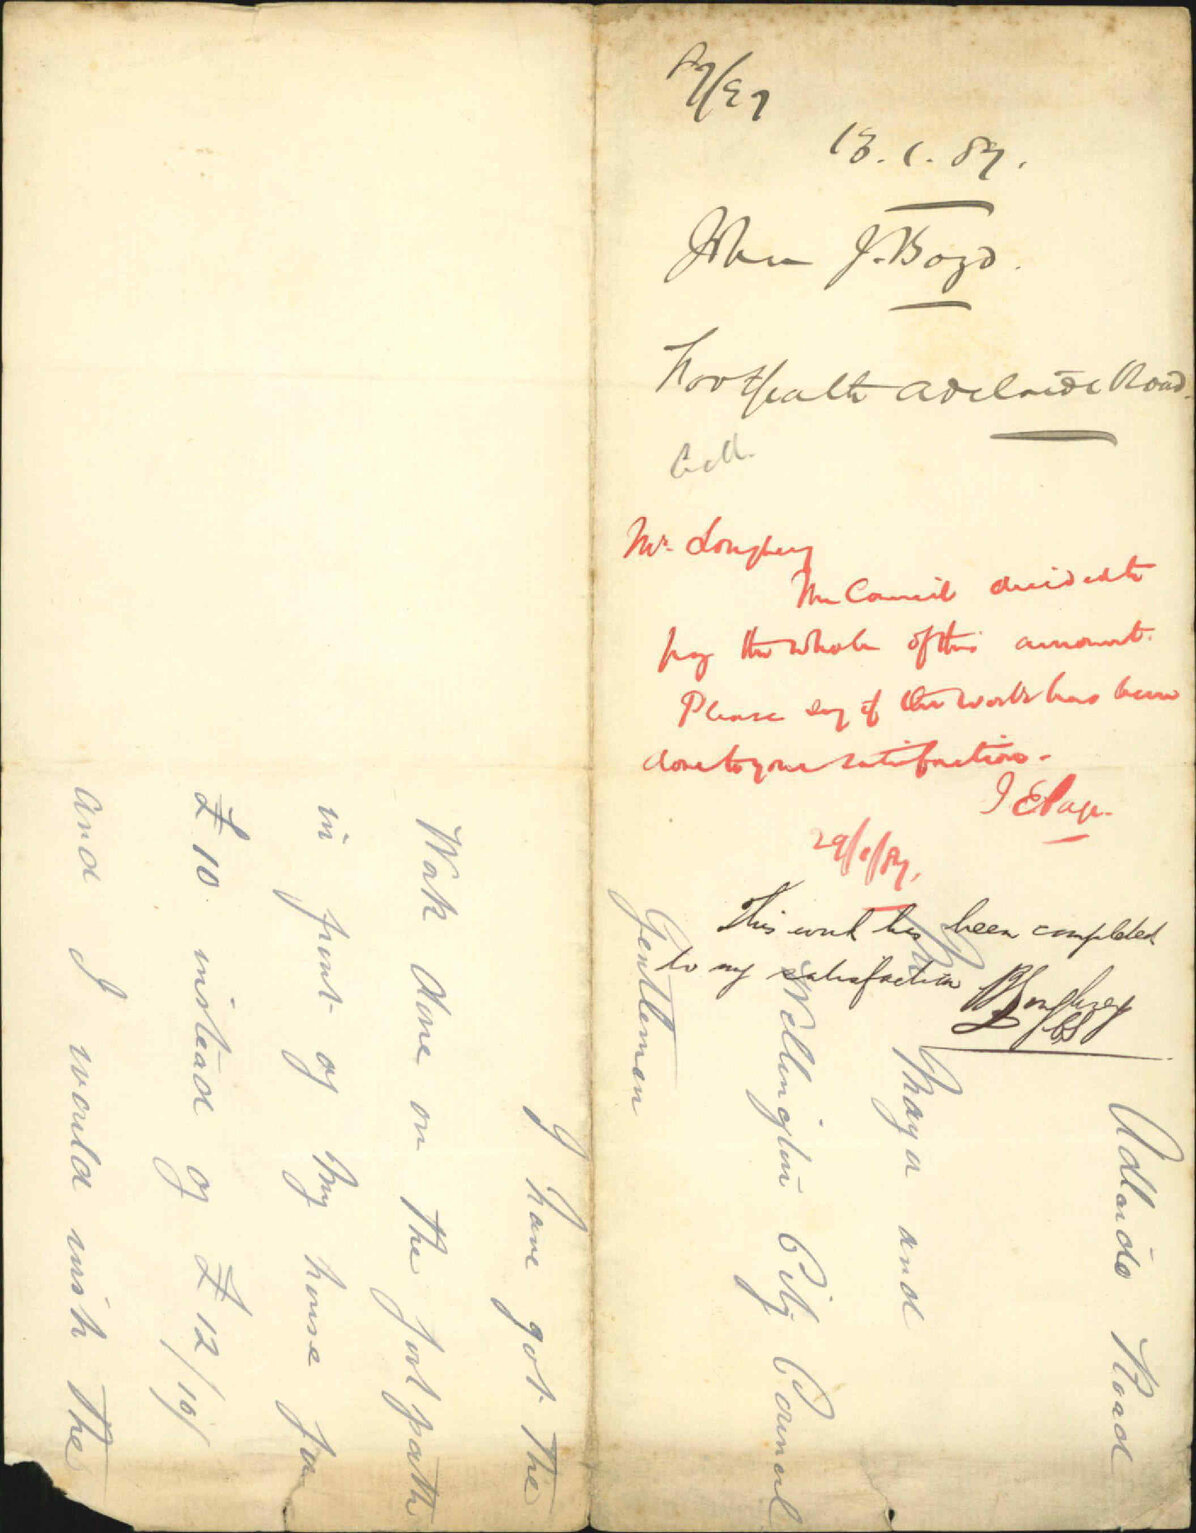 87/87
18.1.87.
John J. Boyd.
Footpath Adelaide Road.
Mr. Loughrey
The Council decided to
pay the whole of this amount.
Please say if the work has been
done to your satisfaction.
J E Page.
29/1/87.
This work has been completed
to my satisfaction
Adlaide Road
Maya and
Wellington City Council
Gentlemen
I have got the
Work done on the footpath
in front of my house for
£10 instead of £12/10/
and I would wish the